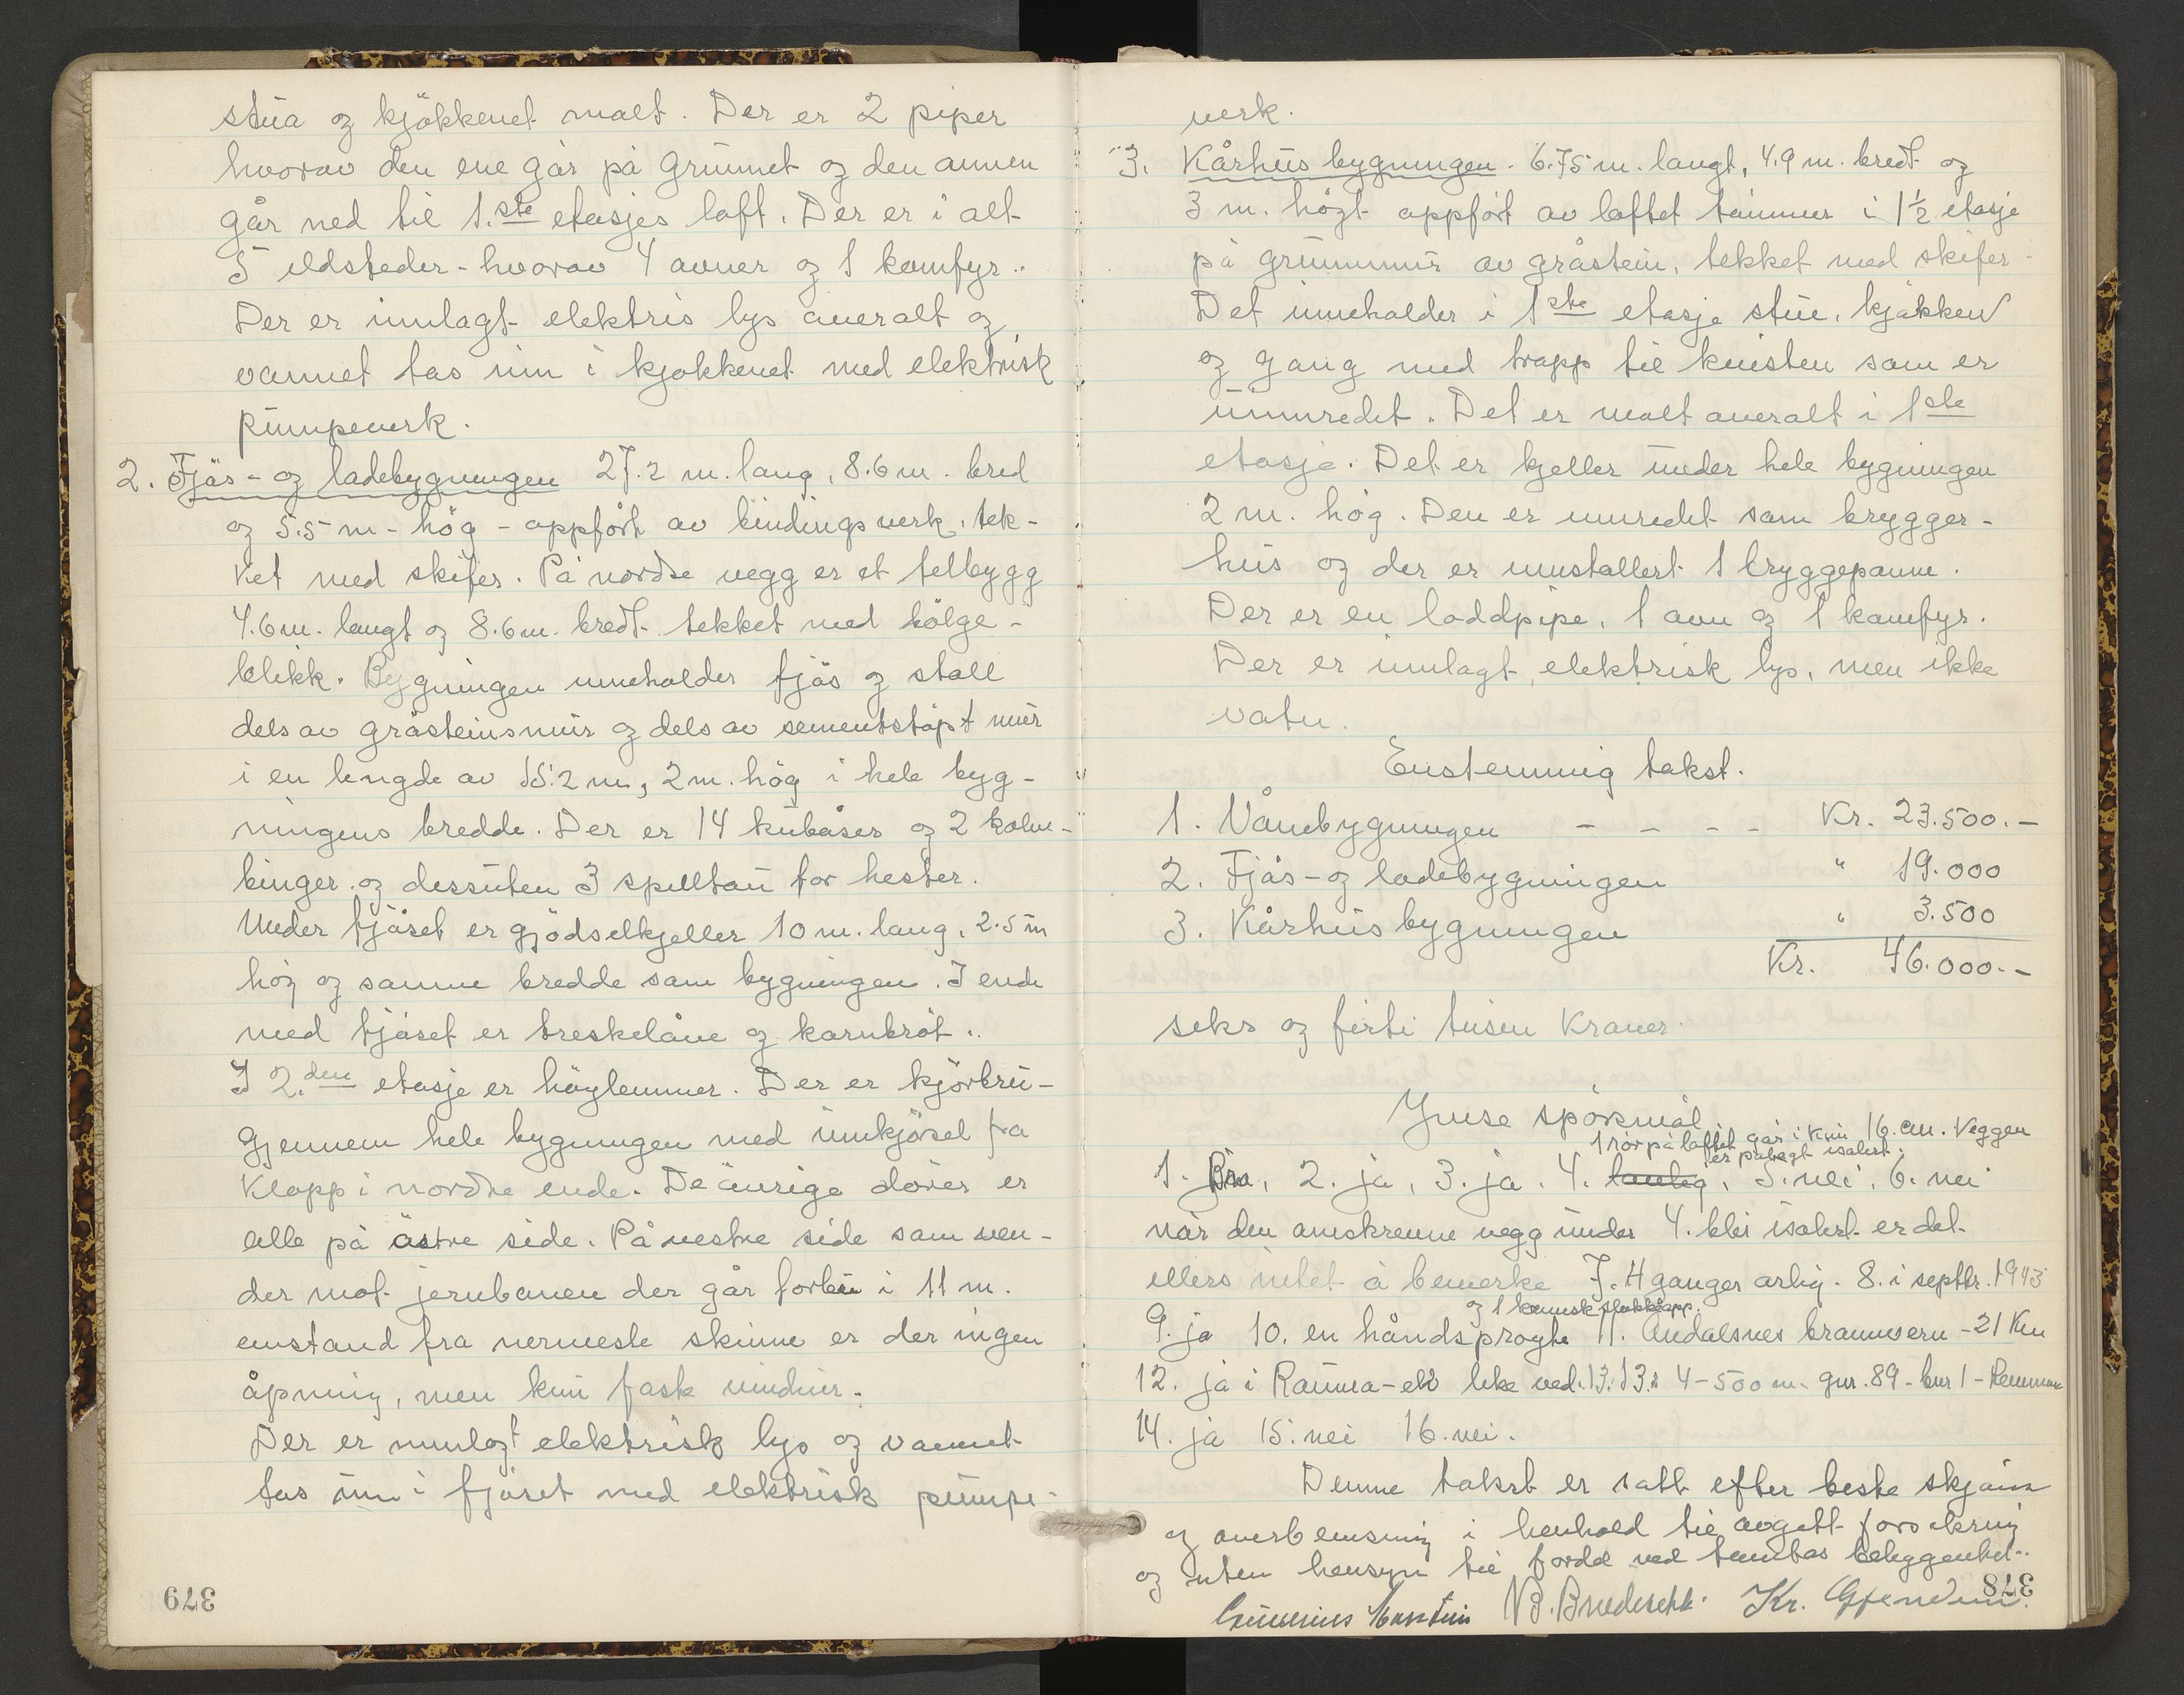 stua og kjökkenet malt. Der er 2 piper
hvorav den ene går på grunnet og den annen
går ned til 1.ste etasjes loft. Der er i alt
5 ildsteder - hvorav 4 ovner og 1 komfyr..
Der er innlagt elektris lys overalt og
vannet tas inn i kjøkkenet med elektrisk
pumpeverk.
2. Fjös- og ladebygningen 27.2 m. lang, 8.6 m. bred
og 5.5 m - hög - oppfört av bindingsverk, tek-
ket med skifer. På nordre vegg er et telbygg
4.6 m. langt og 8.6 m. bredt tekket med bölge-
blikk. Bygningen inneholder fjös og stall
dels av gråsteinsmur og dels av sementstöpt mur
i en lengde av 15.2 m, 2 m. hög i hele byg-
ningens bredde. Der er 14 kubåser og 2 kalve-
binger og dessuten 3 spilltau for hester.
Under fjöset er gjödselkjeller 10 m. lang, 2.5 m
höj og samme bredde som bygningen. I ende
med fjöset er treskelåve og kornbröt..
I 2.den etasje er höylemmer. Der er kjörbru-
gjennem hele bygningen med innkjörsel fra
Klopp i nordre ende. De övrige dörer er
alle på östre side. På vestre side som ven-
der mot jernbanen der går forbi i 11 m.
avstand fra nermeste skinne er der ingen
åpning, men kun faste vinduer.
Der er innlagt elektrisk lys og vannet
tas inn i fjöset med elektrisk pumpe-
379
verk.
3. Kårhusbygningen - 6.75 m. langt, 4.9 m. bredt og
3 m. högt oppfört av laftet tömmer i 1½ etasje
på grunnmur av gråstein, tekket med skifer -
Det inneholder i 1ste etasje stue, kjökken
og gang med trapp til kvisten som er
uinnredet. Det er malt overalt i 1ste
etasje. Det er kjeller under hele bygningen
2 m. hög. Den er innredet som brygger-
hus og der er innstallert 1 bryggepanne.
Der er en loddpipe, 1 ovn og 1 komfyr.
Der er innlagt elektrisk lys, men ikke
vatn.
Enstemmig takst.
1. Vånebygningen - - - - Kr. 23.500.-
2. Fjös- og ladebygningen " 19.000
3. Kårhusbygningen " 3.500
Kr. 46.000.-
seks og firti tusen Kroner.
Ymse spörsmål
1 rör på loftet går i kun 16. cm. Veggen
er pålagt isolert.
1. Bra, 2. ja, 3. ja. 4. 5. nei, 6. nei
når den omskrevne vegg under 4. blir isolert er det
ellers intet å bemerke 7. 4 ganger årlig. 8. i septbr. 1943
og 1 kannsk
9. ja 10. en håndsprøyte 11. Åndalsnes brannvern - 21 Km
12. ja i Rauma-elv like ved. 13. 13.: 4-500 m. gnr. 89 - bnr 1 - Remmem
14. ja 15. nei 16. nei.
Denne takst er satt efter beste skjönn
og overbevisning i henhold til avgitt forsikring
og uten hensyn til fordel ved tomtas beliggenhet..
Kr. Gjendem.
378